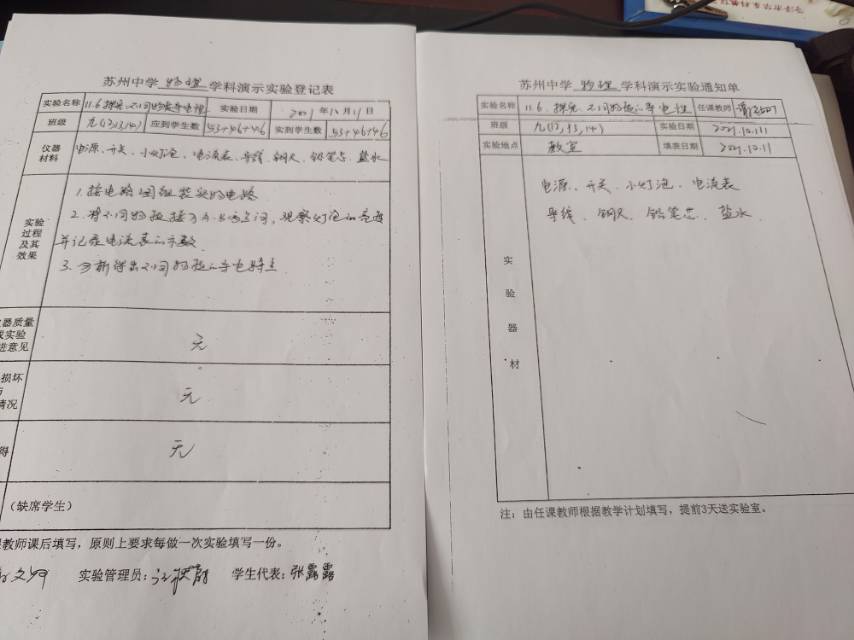 苏州中学 物理 学科演示实验登记表
实验名称 11.6 探究不同物质导电性 实验日期 2021年10月11日
班级 九(12,13,14) 应到学生数 43+46+46 实到学生数 43+46+46
仪器材料 电源、开关、小灯泡、电流表、导线、钢尺、铅笔芯、盐水
实验过程及其效果
1. 按电路图组装实物电路
2. 将不同物质接于A、B两点之间,观察灯泡的亮度
并记录电流表的示数
3. 分析得出不同物质的导电特点
器质量
实验
进意见 无
损坏
情况 无
得 无
(缺席学生)
教师课后填写,原则上要求每做一次实验填写一份。
实验管理员: 学生代表:张露露
苏州中学 物理 学科演示实验通知单
实验名称 11.6 探究不同物质的导电性 任课教师
班级 九(12,13,14) 实验日期 2021.10.11
实验地点 教室 填表日期 2021.10.11
实验器材
电源、开关、小灯泡、电流表
导线、钢尺、铅笔芯、盐水
注:由任课教师根据教学计划填写,提前3天送实验室。